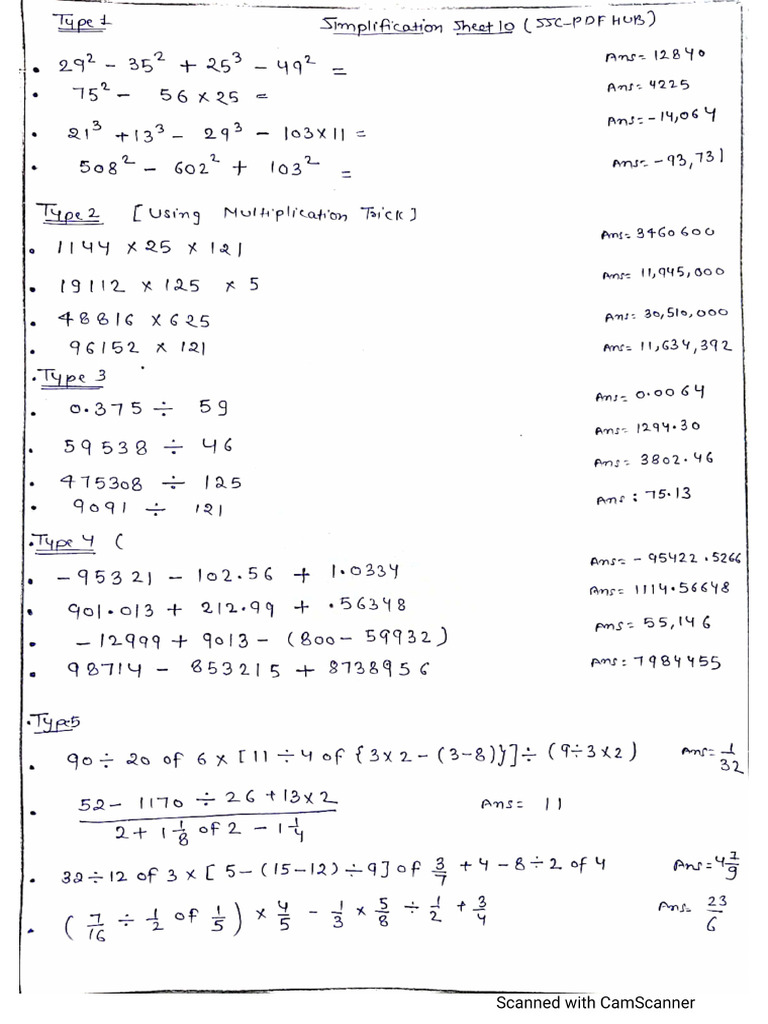 Type 1 Simplification Sheet 10 (SSC-PDF HUB)
• 29² - 35² + 25³ - 49² = Ans= 12840
• 75² - 56 × 25 = Ans= 4225
• 21³ + 13³ - 29³ - 103×11 = Ans= -14,064
• 508² - 602² + 103² = Ans= -93,731
Type 2 [Using Multiplication Trick]
• 1144 × 25 × 121 Ans= 3460600
• 19112 × 125 × 5 Ans= 11,945,000
• 48816 × 625 Ans= 30,510,000
• 96152 × 121 Ans= 11,634,392
• Type 3
• 0.375 ÷ 59 Ans= 0.0064
• 59538 ÷ 46 Ans= 1294.30
• 475308 ÷ 125 Ans= 3802.46
• 9091 ÷ 121 Ans: 75.13
• Type 4 (
• -95321 - 102.56 + 1.0334 Ans= -95422.5266
• 901.013 + 212.99 + .56348 Ans= 1114.56648
• -12999 + 9013 - (800 - 59932) Ans= 55,146
• 98714 - 853215 + 8738956 Ans: 7984455
• Type5
• 90 ÷ 20 of 6 × [11 ÷ 4 of {3×2 - (3-8)}] ÷ (9÷3×2) Ans= 1/32
• (52 - 1170 ÷ 26 + 13×2)/(2 + 1 1/8 of 2 - 1 1/4) Ans= 11
• 32 ÷ 12 of 3 × [5 - (15-12) ÷ 9] of 3/7 + 4 - 8 ÷ 2 of 4 Ans= 4 7/9
• (7/16 ÷ 1/2 of 1/5) × 4/5 - 1/3 × 5/8 ÷ 1/2 + 3/4 Ans= 23/6
Scanned with CamScanner